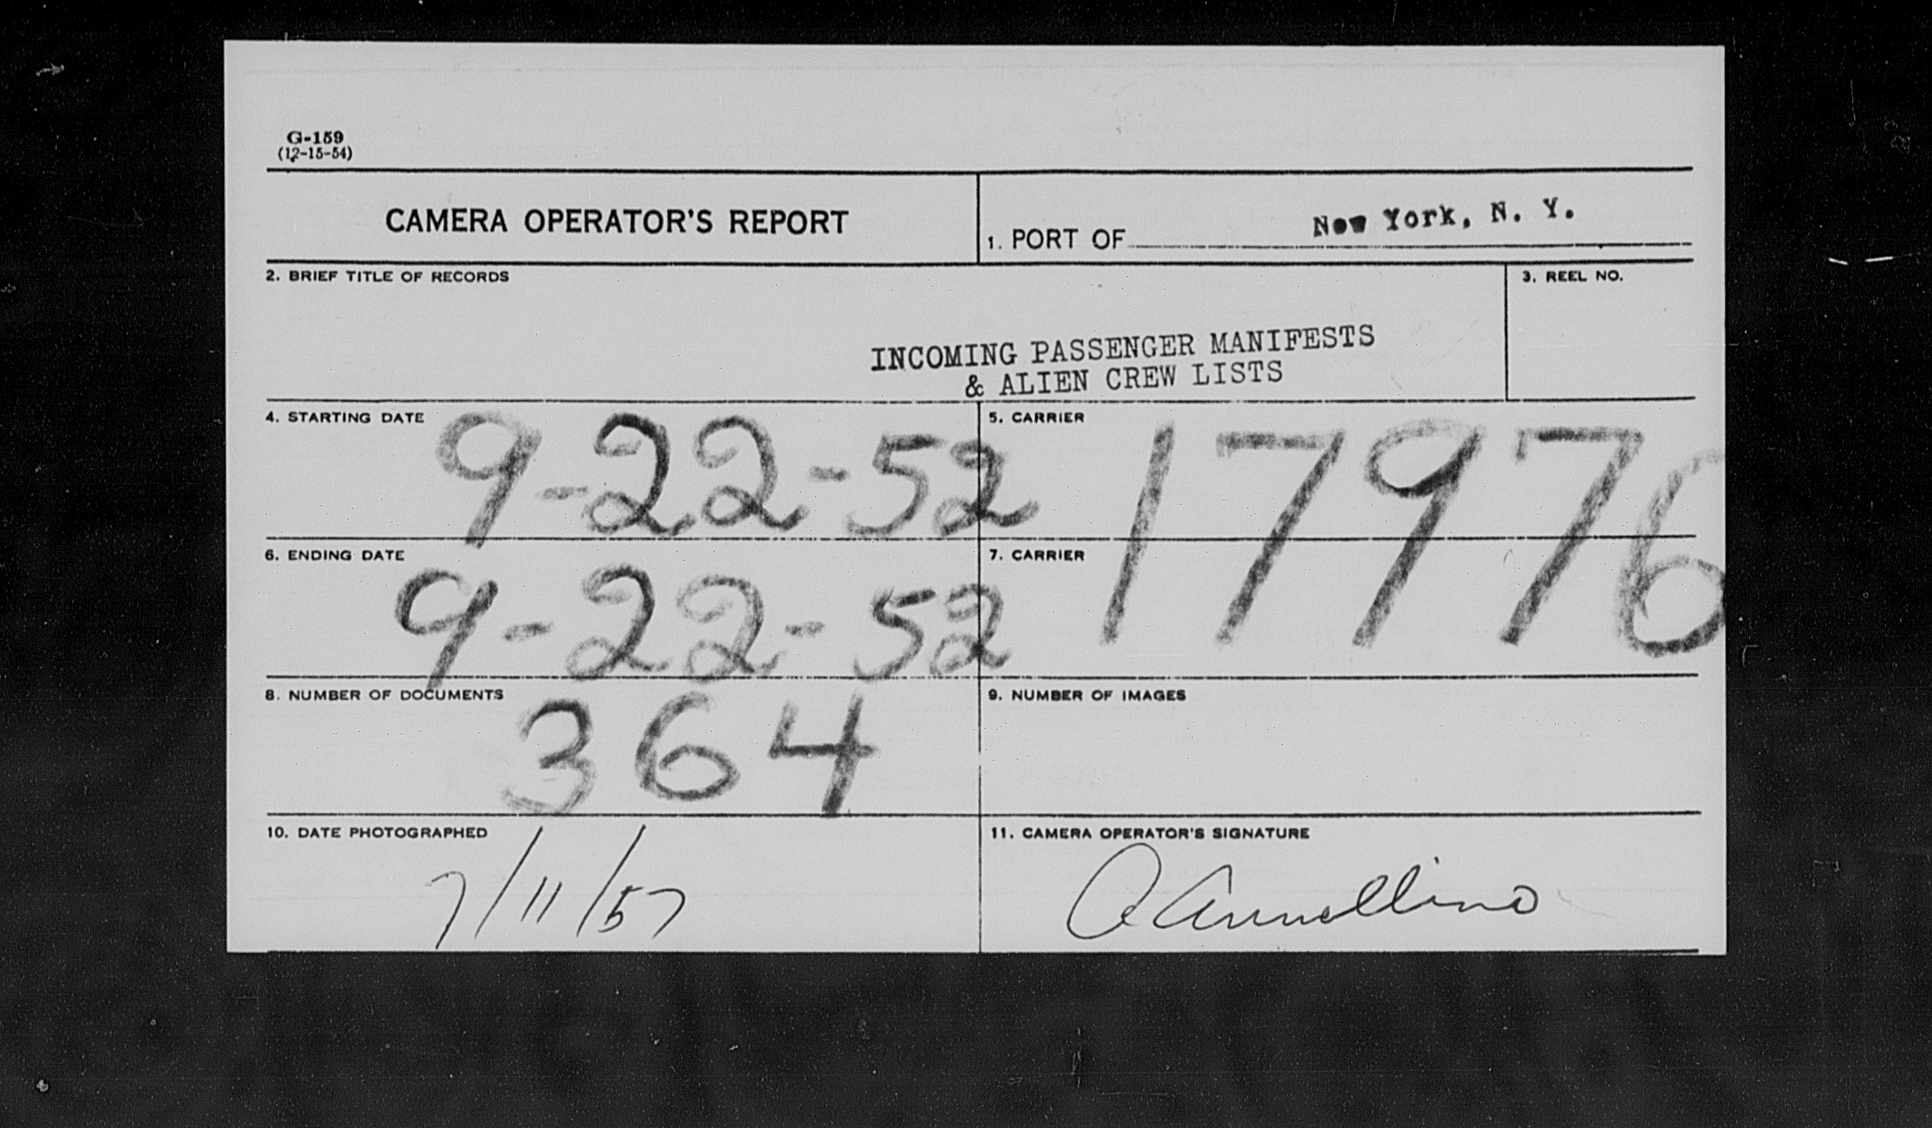 G-159
(12-15-54)
CAMERA OPERATOR'S REPORT
1. PORT OF New York, N. Y.
2. BRIEF TITLE OF RECORDS
3. REEL NO.
INCOMING PASSENGER MANIFESTS
& ALIEN CREW LISTS
4. STARTING DATE 9-22-52
5. CARRIER
17976
6. ENDING DATE 9-22-52
7. CARRIER
8. NUMBER OF DOCUMENTS 364
9. NUMBER OF IMAGES
10. DATE PHOTOGRAPHED 7/11/57
11. CAMERA OPERATOR'S SIGNATURE